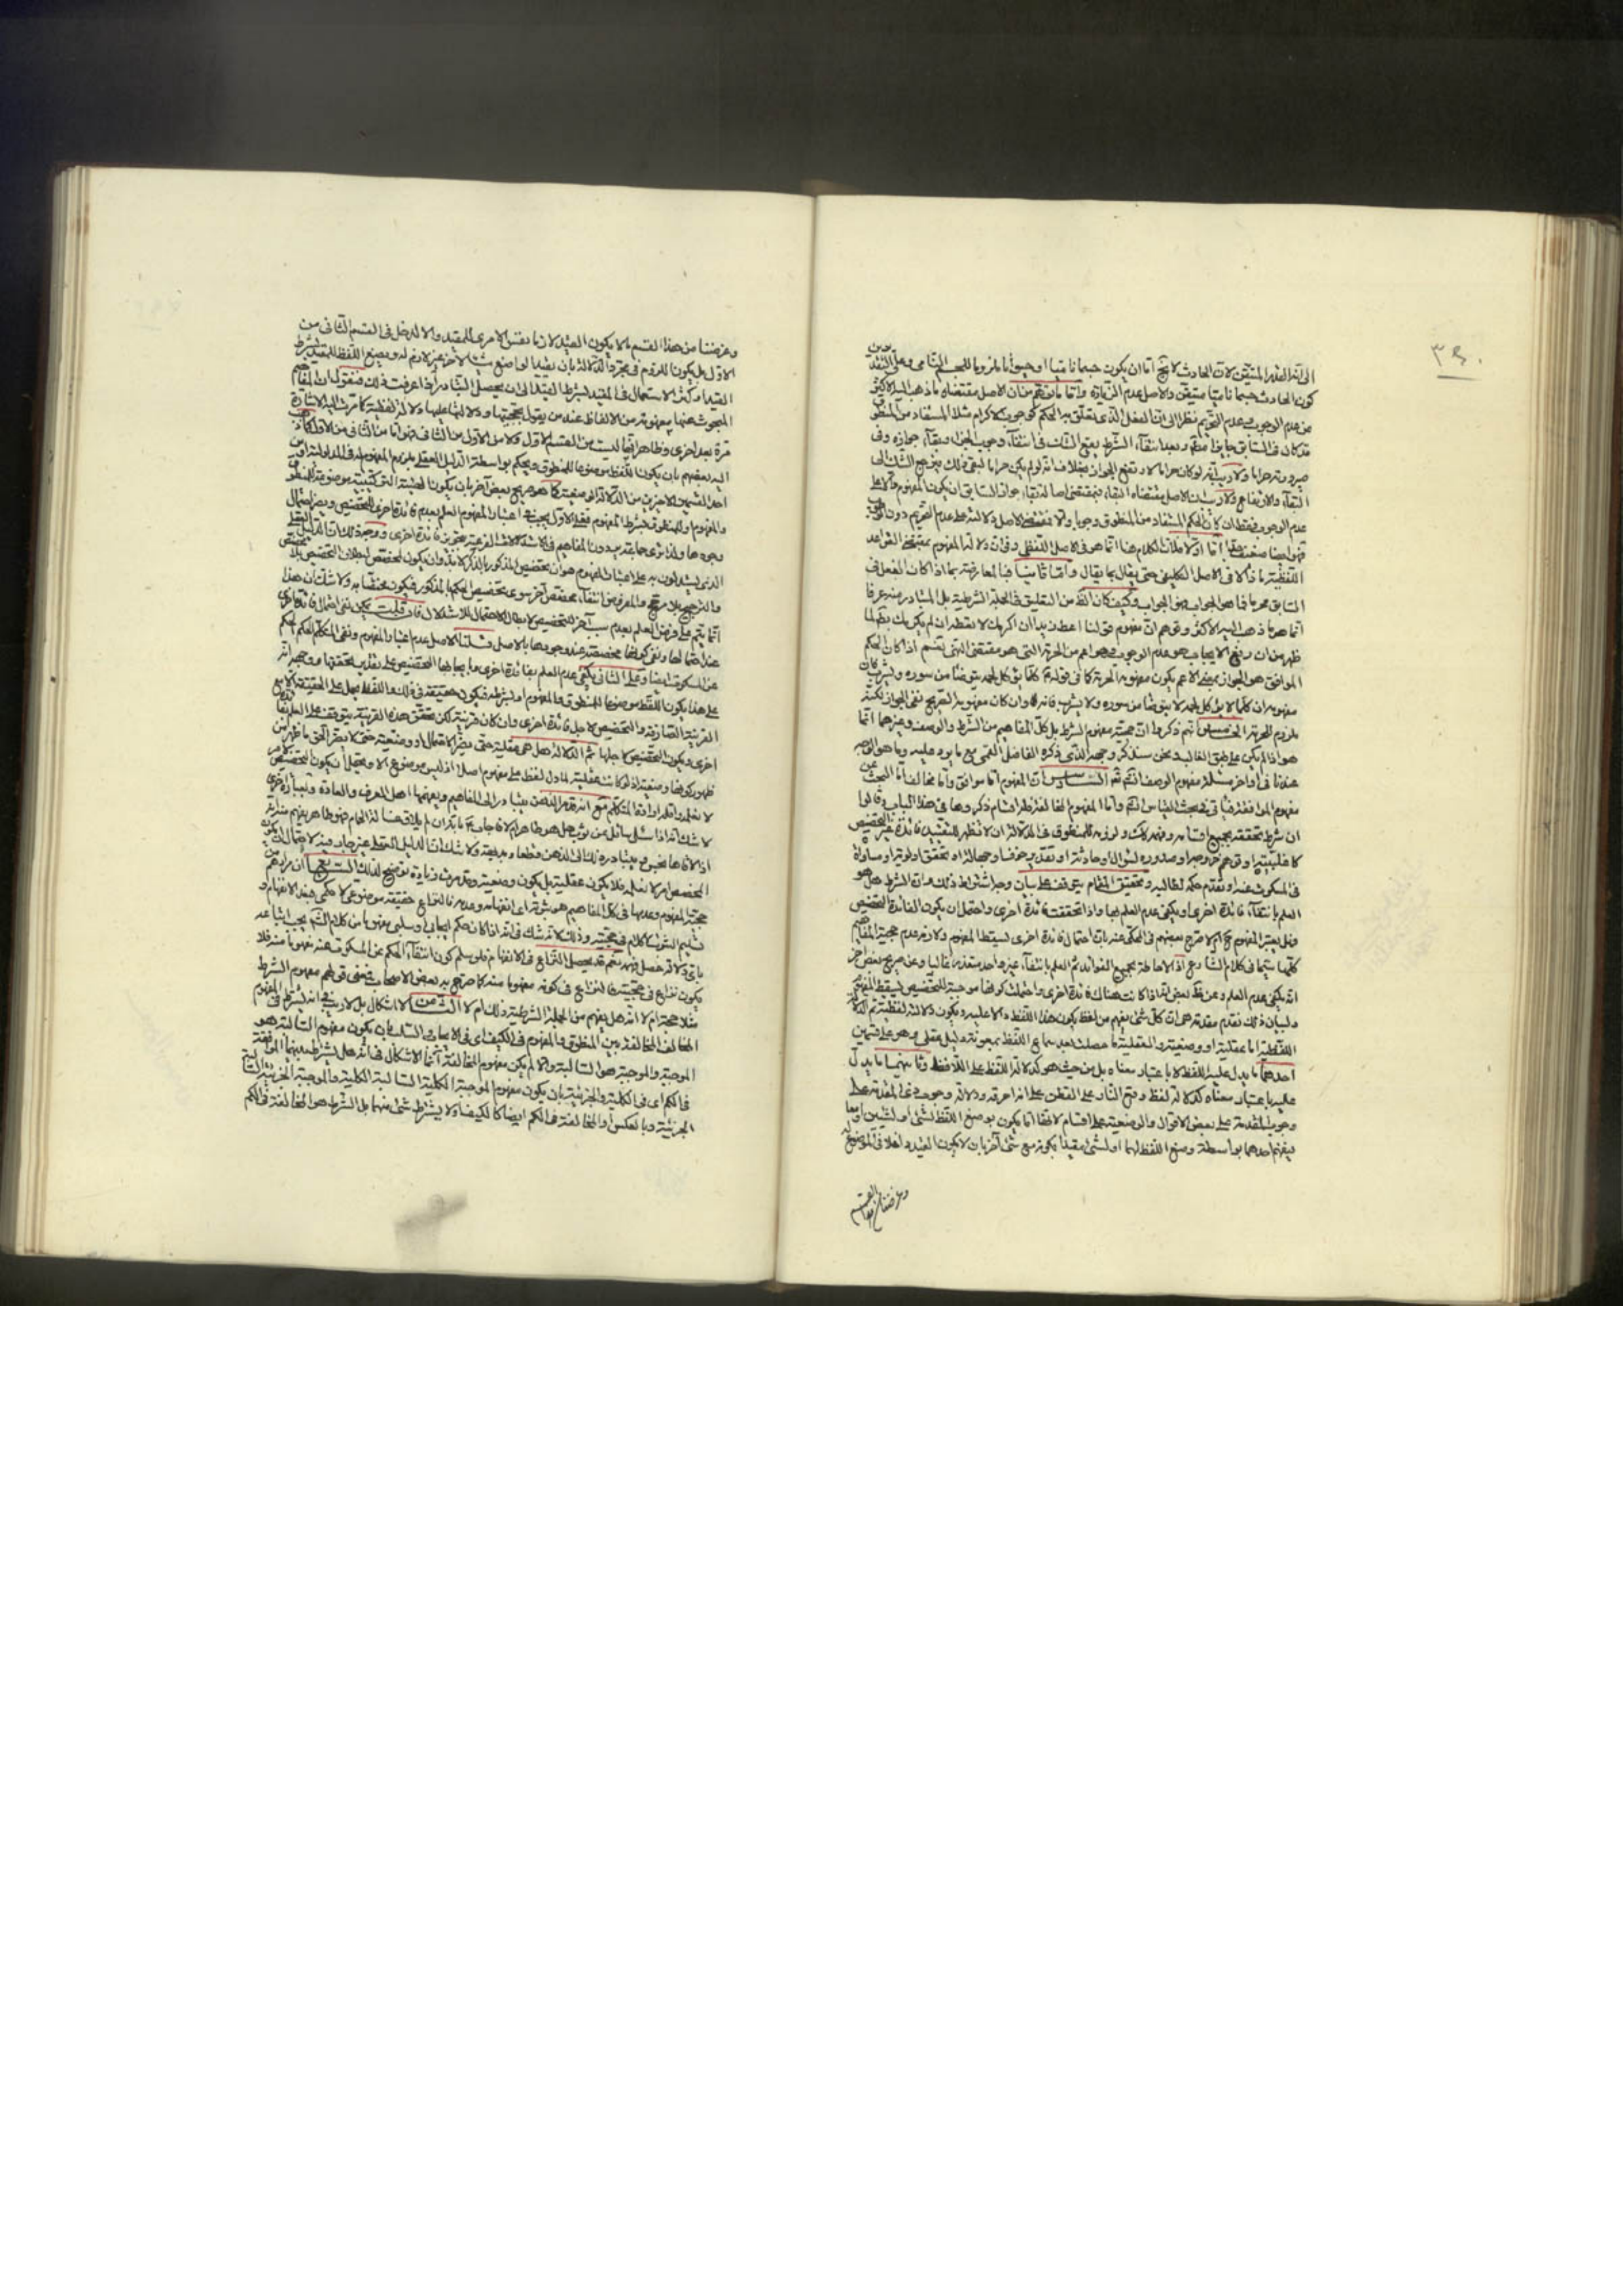 ٣٩٠
الى انه القدر المتيقن لان الحادث لا يخ اما ان يكون جسما ناميا او حيوانا ملزوما للجسم النامى وعلى التقديرين
كون الحادث جسما ناميا متيقن والاصل عدم الزيادة واما ما توهم من ان الاصل مقتضاه ما ذهب اليه الاكثر
من عدم الوجوب عدم التحريم نظرا الى ان الفعل الذى يتعلق به الحكم كوجوب الاكرام مثلا المستفاد من المنطوق
قد كان فى السابق جايزا وبعد انتفاء الشرط يقع الشك فى انتفاء وجوب الجواز وبقاء جوازه وفى
صيرورته حراما ولا ريب انه لو كان حراما لارتفع الجواز بخلاف انه لو لم يكن حراما لبقى ذلك فيرجع الشك الى
البقاء والارتفاع ولا ريب ان الاصل مقتضاه البقاء فمقتضى اصالة بقاء جواز السابق ان يكون المفهوم دالا على
عدم الوجوب فقط ان كان الحكم المستفاد من المنطوق وجوبا والا فمقتضى الاصل دلالته على عدم التحريم دون
فهو ايضا ضعيف اما اولا فلان الكلام هنا انما هو فى الاصل اللفظى وفى ان دلالة المفهوم بمقتضى القواعد
اللفظية ما ذا لا فى الاصل التكليفى حتى يقال بما يقال واما ثانيا فبالمعارضة بما اذا كان الفعل فى
السابق محرما فما هو الجواب فهو الجواب وكيف كان الظ من التعليق فى الجملة الشرطية بل المتبادر منه عرفا
انما هو ما ذهب اليه الاكثر وتوهم ان مفهوم قولنا اعط زيدا ان اكرمك لا تعطه ان لم يكرمك بظ لما
ظهر من ان رفع الايجاب هو عدم الوجوب وهو اعم من الحرمة التى هو مقتضى النهى نعم اذا كان الحكم
الموافق هو الجواز بمعنى الاعم يكون مفهومه الحرمة كما فى قوله كلما يؤكل لحمه يتوضأ من سوره ويشرب فان
مفهومه ان كلما لا يؤكل لحمه لا يتوضأ من سوره ولا يشرب فانه وان كان مفهومه الصريح نفى الجواز لكنه
ملزوم للحرمة الخامس انهم ذكروا ان حجية مفهوم الشرط بل كل المفاهيم من الشرط والوصف وغيرهما انما
هو اذا لم يكن على طبق الغالب ونحن سنذكر وجهه الذى ذكره الفاضل القمى مع ما يرد عليه وما هو الوجه
عندنا فى اواخر مسئلة مفهوم الوصف انشم ثم السادس ان المفهوم اما موافق واما مخالف اما البحث عن
مفهوم الموافقة فياتى فى بحث القياس انشم واما المفهوم المخالف فله اقسام ذكروها فى هذا الباب وقالوا
ان شرط تحققه بجميع اقسامه وفهم ذلك ولزومه للمنطوق فى الدلالة ان لا تظهر للتقييد فائدة غير التخصيص
كاغلبيته او توهم خروجه او صدوره لسؤال او حادثة او تقدير خوف او جهالة او تحقق اولوية او مساواة
فى المسكوت عنه او تقدم حكمه لطالبه وتحقيق المقام يتوقف على بيان وجه اشتراط ذلك وان الشرط هل هو
العلم بانتفاء فائدة اخرى او يكفى عدم العلم بها واذا تحققت فائدة اخرى واحتمل ان يكون الفائدة التخصيص
فهل يعتبر المفهوم ح ام لا صرح بعضهم فى المحكى عنه بان احتمال فائدة اخرى يسقط المفهوم ولازمه عدم حجية المفاهيم
كلها سيما فى كلام الشارع اذ الاحاطة بجميع الفوائد ثم العلم بانتفاء غير واحد متعذر غالبا وعن صريح بعض اخر
انه يكفى عدم العلم وعن ظ بعض انه اذا كانت هناك فائدة اخرى واحتملت كونها موجبة للتخصيص يسقط المفهوم
ولبيان ذلك نقدم مقدمة هى ان كل شئ يفهم من لفظ يكون هذا اللفظ دالا عليه ويكون دلالته لفظية ثم الدلالة
اللفظية اما عقلية او وضعية والعقلية ما حصلت بعد سماع اللفظ بمعونة دليل عقلى وهو على قسمين
احدهما ما يدل عليه اللفظ لا باعتبار معناه بل من حيث هو كدلالة اللفظ على اللافظ وثانيهما ما يدل
عليه باعتبار معناه كدلالة لفظ وقع النار على القطن على انه احرقه ودلالة وجوب ذى المقدمة على
وجوب المقدمة على بعض الاقوال والوضعية على اقسام لانها اما يكون بوضع اللفظ لشئ او لشيئين او معا
فيفهم احدهما بواسطة وضع اللفظ لهما او لشئ مقيدا بكونه مع شئ آخر بان لا يكون القيد داخلا فى الموضوع له
وغرضنا من هذا القسم
وغرضنا من هذا القسم ما لا يكون القيد لازما بنفس الامرى للمقيد والا لدخل فى القسم الثانى من
الاول بل يكون اللزوم فى مجرد الدلالة بان يقيد الواضع شيئا لاخر غير لازم له ويضع اللفظ للمقيد بشرط
القيد او كثر الاستعمال فى المقيد بشرط القيد الى ان يحصل التبادر اذا عرفت ذلك فنقول ان المفاهيم
المبحوث عنها مفهومة من الالفاظ عند من يقول بحجيتها ودلالتها عليها دلالة لفظية كما مرت اليه الاشارة
مرة بعد اخرى وظاهر انها ليست من القسم الاول ولا من الاول من الثانى فهو اما من الثانى من الاول كما ذهب
اليه بعضهم بان يكون اللفظ موضوعا للمنطوق ويحكم بواسطة الدليل العقلى بلزوم المفهوم له فى الدلالة او من
احد القسمين الاخيرين من الدلالة الوضعية كما هو صريح بعض آخر بان يكون الهيئة التركيبية موضوعة للمنطوق
والمفهوم او للمنطوق بشرط المفهوم فعلى الاول يجب فى اعتبار المفهوم العلم بعدم فائدة اخرى للتخصيص ويضر احتمال
وجودها
الذى يستدلون به على اعتبار المفهوم هو ان تخصيص المذكور بالذكر لا بد وان يكون لمخصص لبطلان التخصيص بلا مخصص
والترجيح بلا مرجح والمفروض انتفاء مخصص آخر سوى تخصيص الحكم بالمذكور فيكون مختصا به ولا شك ان هذا
انما يتم على فرض العلم بعدم سبب آخر للتخصيص لابطال الاحتمال للاستدلال فان قلت يمكن نفى احتمال فائدة اخرى
عند احتمالها ونفى كونها مخصصة عند وجودها بالاصل قلنا الاصل عدم اعتبار المفهوم ونفى المتكلم الحكم
عن المسكوت ايضا وعلى الثانى يكفى عدم العلم بفائدة اخرى وما يجابها التخصيص على تقدير تحققها ووجهه انه
على هذا يكون اللفظ موضوعا للمنطوق والمفهوم او بشرطه فيكون حقيقة فى ذلك واللفظ يحمل على الحقيقة الا مع
القرينة الصارفة والتخصيص لاجل فائدة اخرى وان كان قرينة لكن تحقق هذه القرينة يتوقف على العلم بفائدة
اخرى ويكون التخصيص لاجلها ثم الدلالة هل هى عقلية حتى يضر الاحتمال او وضعية حتى لا يضر الحق ما ظهر من
ظهور كونها وضعية اذ لو كانت عقلية لما دل لفظ على مفهوم اصلا اذ ليس موضوع الا ويحتمل ان يكون للتخصيص
لا نعلمه او اراده المتكلم مع انه قد مر الذهن يتبادر الى المفاهيم ويفهمها اهل العرف والعادة وبعبارة اخرى
لا شك انه اذا سئل سائل
اذ الافهام
المخصص امر لا نعلمه فلا يكون عقلية بل يكون وضعية وقد مرت زيادة توضيح لذلك السابع ان مرادهم من
حجية المفهوم وعدمها فى كل المفاهيم هو ثبوته اى انفهامه وعدمه فالنزاع حقيقة موضوعى لا حكمى فبعد الانفهام و
تسليم الثبوت لا كلام فى حجيته وذلك لانه لا شك فى انه اذا كان حكم ايجابى او سلبى مفهوما من كلام الشارع يجب اتباعه
باى دلالة حصل فهمه نعم قد يحصل النزاع فى الانفهام فلو سلم كون انتفاء الحكم عن المسكوت عنه مفهوما منه فلا
يكون نزاع فى حجيته فالنزاع فى كونه مفهوما منه كما صرح به بعض الاصحاب فمعنى قولهم مفهوم الشرط
مثلا حجة ام لا انه هل يفهم من الجملة الشرطية ذلك ام لا الثامن لا اشكال بل لا ريب فى انه يشترط فى المفهوم
المخالف المخالفة بين المنطوق والمفهوم فى الكيف اى فى الايجاب والسلب بان يكون مفهوم السالبة هو
الموجبة والموجبة هو السالبة والا لم يكن مفهوم المخالفة انما الاشكال فى انه هل يشترط بينهما الموافقة
فى الكم اى فى الكلية والجزئية بان يكون مفهوم الموجبة الكلية السالبة الكلية والموجبة الجزئية السالبة
الجزئية وبالعكس او المخالفة فى الكم ايضا كالكيف او لا يشترط شئ منهما بل الشرط هو المخالفة فى الكم